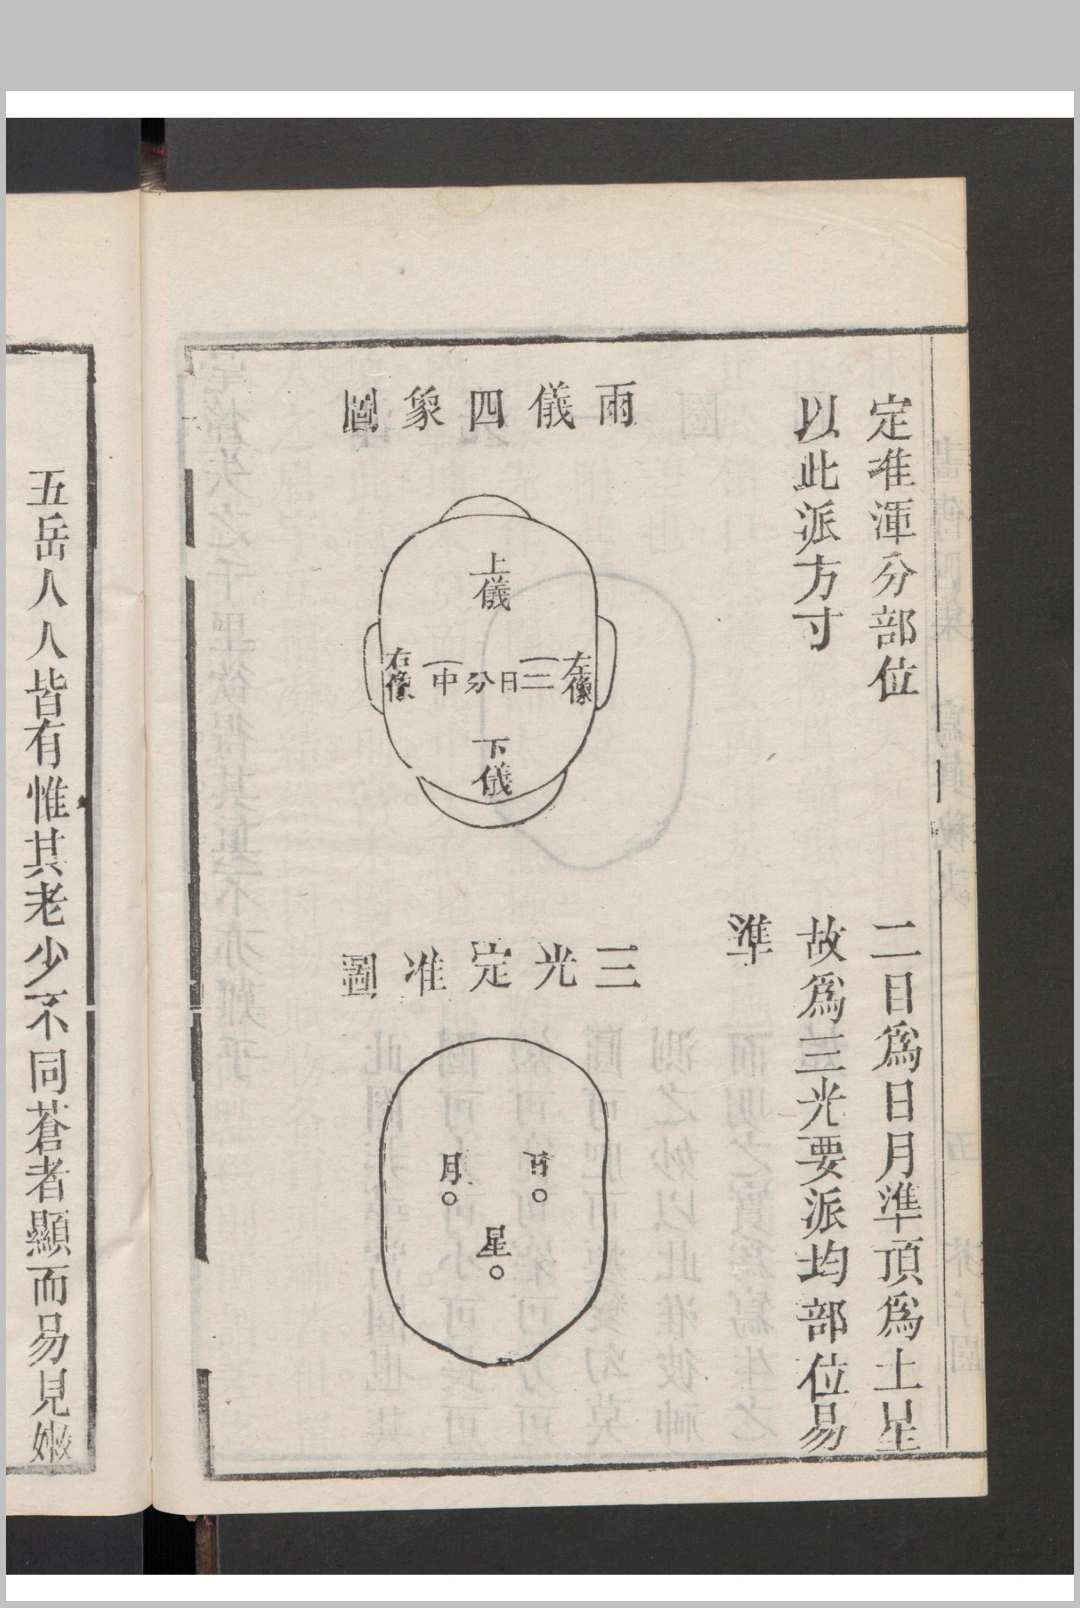 定準渾分部位
以此派方寸
雨儀四象圖
上儀
左像
二目分中一
右像
下儀
二目爲日月準頂爲土星
故爲三光要派均部位易
準
三光定准圖
日
月
星
五岳人人皆有惟其老少不同蒼者顯而易見嫩